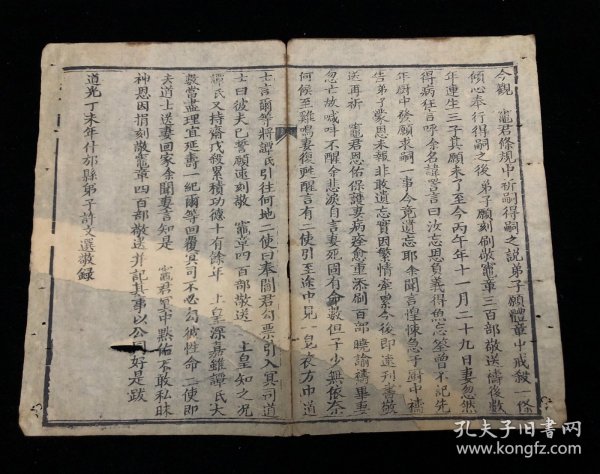 今觀　竈君條規中祈嗣得嗣之說弟子願體章中戒殺一條
傾心奉行得嗣之後弟子願刻刷敬竈章三百部敬送禱後數
年連生三子其願未了至今丙午年十一月二十九日妻忽然
得病狂言呼余名諱詈言曰汝忘恩負義得魚忘筌曾不記先
年厨中發願求嗣一事今竟遺忘耶余聞言惶悚急于厨中禱
告弟子蒙恩未報非敢遺忘實因繁情牽累今後即速刊書敬
送再祈　竈君恩佑保護妻病痊愈重添刷一百部曉諭禱畢妻
忽亡故喊呌不醒余悲淚自言妻死固有命數但子少無依奈
何候至雞鳴妻復甦醒言有二使引至途中見一皂衣方巾道
士言爾等將譚氏引往何地二使曰奉閻君勾票引入冥司道
士曰彼夫已誓願速刻敬　竈章四百部敬送　上皇知之况
譚氏又持齋戊殺累積功德十有餘年　上皇深嘉雖譚氏大
數當盡理宜延壽一紀爾等回覆冥司不必勾彼性命二使即
夫道士送妻回家余聞妻言知是　竈君冥中黙佑不敢私昧
神恩因捐刻敬竈章四百部敬送并記其事以公同好是跋
道光丁未年什邡縣弟子許文選敬録
孔夫子旧书网
kongfz.com